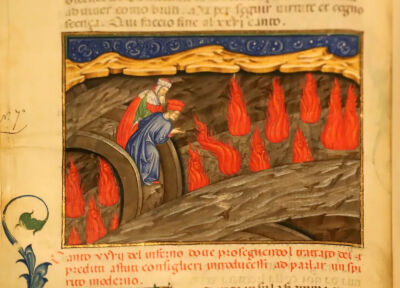 auiuer come bruti. Ma per seguir uirtute et cogno
scença. Qui faccio fine al xxvi canto.
Canto xxvij del inferno doue proseguendol trattato del
prediti astuti consiglieri introducessi ad parlar un spi
rito moderno.